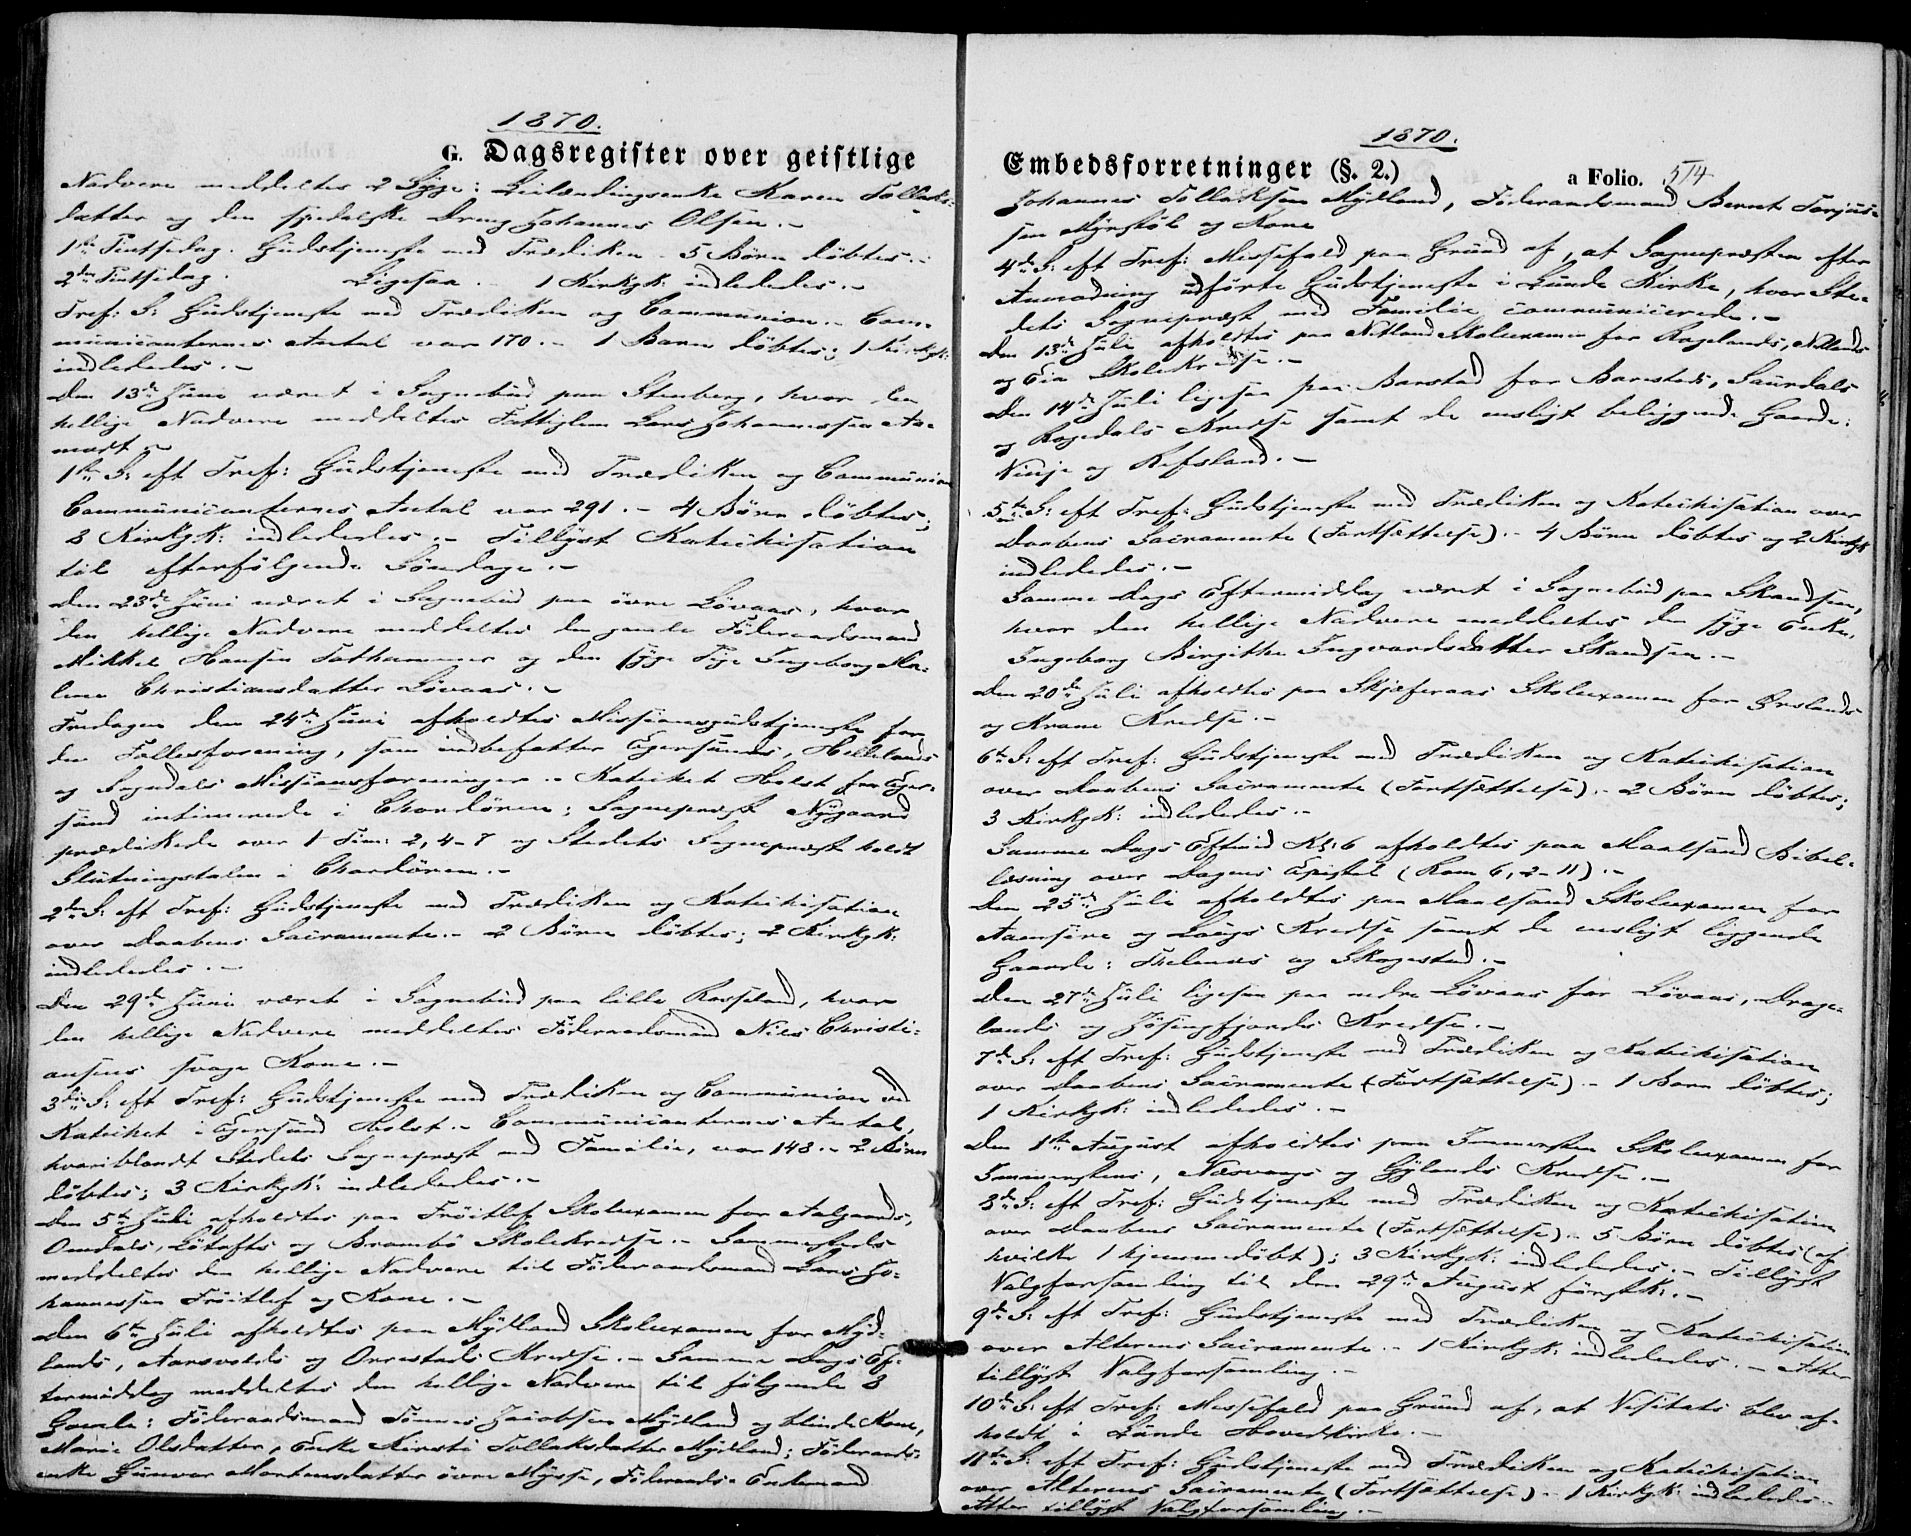 1870.
G. Dagsregister over geistlige
Nadvere meddeltes 2 Syge: Leilændingsenke Karen Tollaks-
datter og den spedalske Dreng Johannes Olsen. -
1ste Pintsedag. Gudstjeneste med Prædiken - 5 Børn döbtes. -
2den Pintsedag. Ligesaa. - 1 Kirkgk: indlededes. -
Tref: S: Gudstjeneste med Prædiken og Communion. - Com-
municanternes Antal var 170. - 1 Barn döbtes; 1 Kirkgk:
indlededes. -
Den 13de Juni været i Sognebud paa Stenberg, hvor den
hellige Nadvere meddeltes Fattiglem Lars Johannessen Aa-
modt. -
1ste S: eft Tref: Gudstjeneste med Prædiken og Communion
Communicanternes Antal var 291. - 4 Börn döbtes;
8 Kirkgk: indlededes. - Tillyst Katechisation
til efterfölgende Söndage. -
Den 23de Juni været i Sognebud paa övre Lövaas, hvor
den hellige Nadvere meddeltes den gamle Föderaadsmand
Mikkel Hansen Tothammer og den syge Pige Ingeborg Ma-
lene Christiansdatter Lövaas. -
Fredagen den 24de Juni afholdtes Missionsgudstjeneste for
den Fællesforening, som indbefatter Egersunds, Hellelands
og Sogndals Missionsforeninger. - Katechet Holst fra Eger-
sund intimerede i Chordören; Sognepræst Nygaard
prædikede over 1 Tim: 2, 4-7 og Stedets Sognepræst holdt
Slutningstalen i Chordören. -
2den S: eft Tref: Gudstjeneste med Prædiken og Katechisation
over Daabens Sacramente. - 2 Börn döbtes; 2 Kirkgk:
indlededes. -
Den 29de Juni været i Sognebud paa lille Rosseland, hvor
den hellige Nadvere meddeltes Föderaadsmand Niels Christi-
ansens svage Kone. -
3die S: eft Tref: Gudstjeneste med Prædiken og Communion ved
Katechet i Egersund Holst. - Communicanternes Antal,
hvoriblandt Stedets Sognepræst med Familie, var 148. - 2 Börn
döbtes; 3 Kirkgk: indlededes. -
Den 5te Juli afholdtes paa Fröitlef Skoleexamen for Aalgaards,
Omdals, Lötofts og Brambö Skolekredse. - Sammesteds
meddeltes den hellige Nadvere til Föderaadsmand Lars Jo-
hannessen Fröitlef og Kone. -
Den 6te Juli afholdtes paa Mydland Skoleexamen for Myd-
lands, Aarsvolds og Orrestads Kredse. - Samme Dags Ef-
termiddag meddeltes den hellige Nadvere til fölgende 8
Gamle: Föderaadsmand Tönnes Jacobsen Mydland og blinde Kone,
Marie Olsdatter, Enke Kirsti Tollaksdatter Mydland; Föderaads-
enke Gunvor Mortensdatter övre Mysse, Föderaads-Enkemand
1870.
Embedsforretninger (§. 2.) a Folio. 514
Johannes Tollaksen Mydland, Föderaadsmand Bernt Torjus-
sen Myrstöl og Kone
4de S: eft Tref: Messefald paa Grund af, at Sognepræsten efter
Anmodning udförte Gudstjeneste i Lunde Kirke, hvor Ste-
dets Sognepræst med Familie communicerede. -
Den 13de Juli afholdtes paa Netland Skoleexamen for Ragelands, Netlands
og Eia Skolekredse. -
Den 14de Juli ligesaa paa Barstad for Barstads, Saurdals
og Regedals Kredse samt de ensligt beliggende Gaarde:
Ninje og Refsland. -
5te S: eft Tref: Gudstjeneste med Prædiken og Katechisation over
Daabens Sacramente (Fortsættelse). - 4 Börn döbtes og 2 Kirkgk
indlededes. -
Samme Dags Eftermiddag været i Sognebud paa Skandsen,
hvor den hellige Nadvere meddeltes den syge Enke,
Ingeborg Birgithe Ingvardsdatter Skandsen. -
Den 20de Juli afholdtes paa Skjæferaas Skoleexamen for Örslands
og Krane Kredse. -
6te S: eft Tref: Gudstjeneste med Prædiken og Katechisation
over Daabens Sacramente (Fortsættelse). - 2 Börn döbtes;
3 Kirkgk: indlededes. -
Samme Dags Eftmid Kl: 6 afholdtes paa Maalsund Bibel-
læsning over Dagens Epistel (Rom 6, 2-11). -
Den 25de Juli afholdtes paa Maalsund Skoleexamen for
Aamsöre og Laugs Kredse samt de ensligt liggende
Gaarde: Helenes og Skogestad. -
Den 27de Juli ligesaa paa nedre Lövaas for Lövaas, Drage-
lands og Jösingfjords Kredse. -
7de S: eft Tref: Gudstjeneste med Prædiken og Katechisation
over Daabens Sacramente (Fortsættelse). - 1 Barn döbtes;
1 Kirkgk: indlededes. -
Den 1ste August afholdtes paa Immersten Skoleexamen for
Immerstens, Næsvaags og Gylands Kredse. -
8de S: eft Tref: Gudstjeneste med Prædiken og Katechisation
over Daabens Sacramente (Fortsættelse). - 5 Börn döbtes (af
hvilke 1 hjemmedöbt); 3 Kirkgk: indlededes. - Tillyst
Valgforsamling til den 29de August förstk: -
9de S: eft Tref: Gudstjeneste med Prædiken og Katechisation
over Alterens Sacramente. - 1 Kirkgk: indlededes. - Atter
tillyst Valgforsamling. -
10de S: eft Tref: Messefald paa Grund af, at Visitats blev af-
holdt i Lunde Hovedkirke. -
11te S: eft Tref: Gudstjeneste med Prædiken og Katechisation
over Alterens Sacramente (Fortsættelse). - 1 Kirkgk: indlededes. -
Atter tillyst Valgforsamling. -